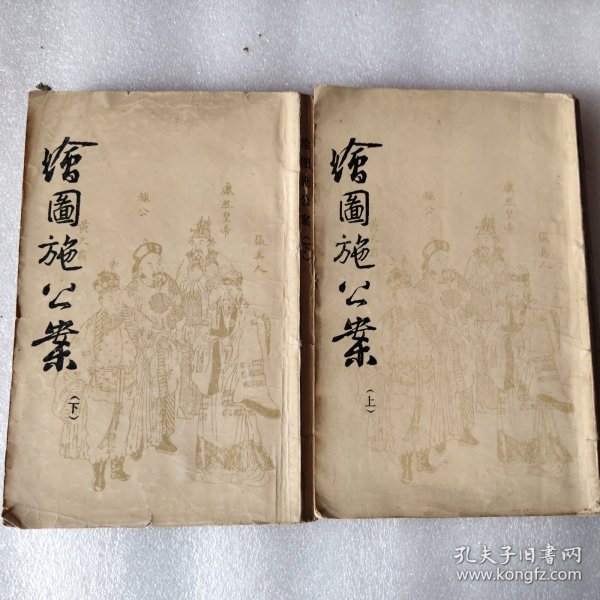 繪圖施公案
（下）
施公
康熙皇帝
張真人
繪圖施公案
（上）
施公
康熙皇帝
張真人
孔夫子旧书网
www.kongfz.com